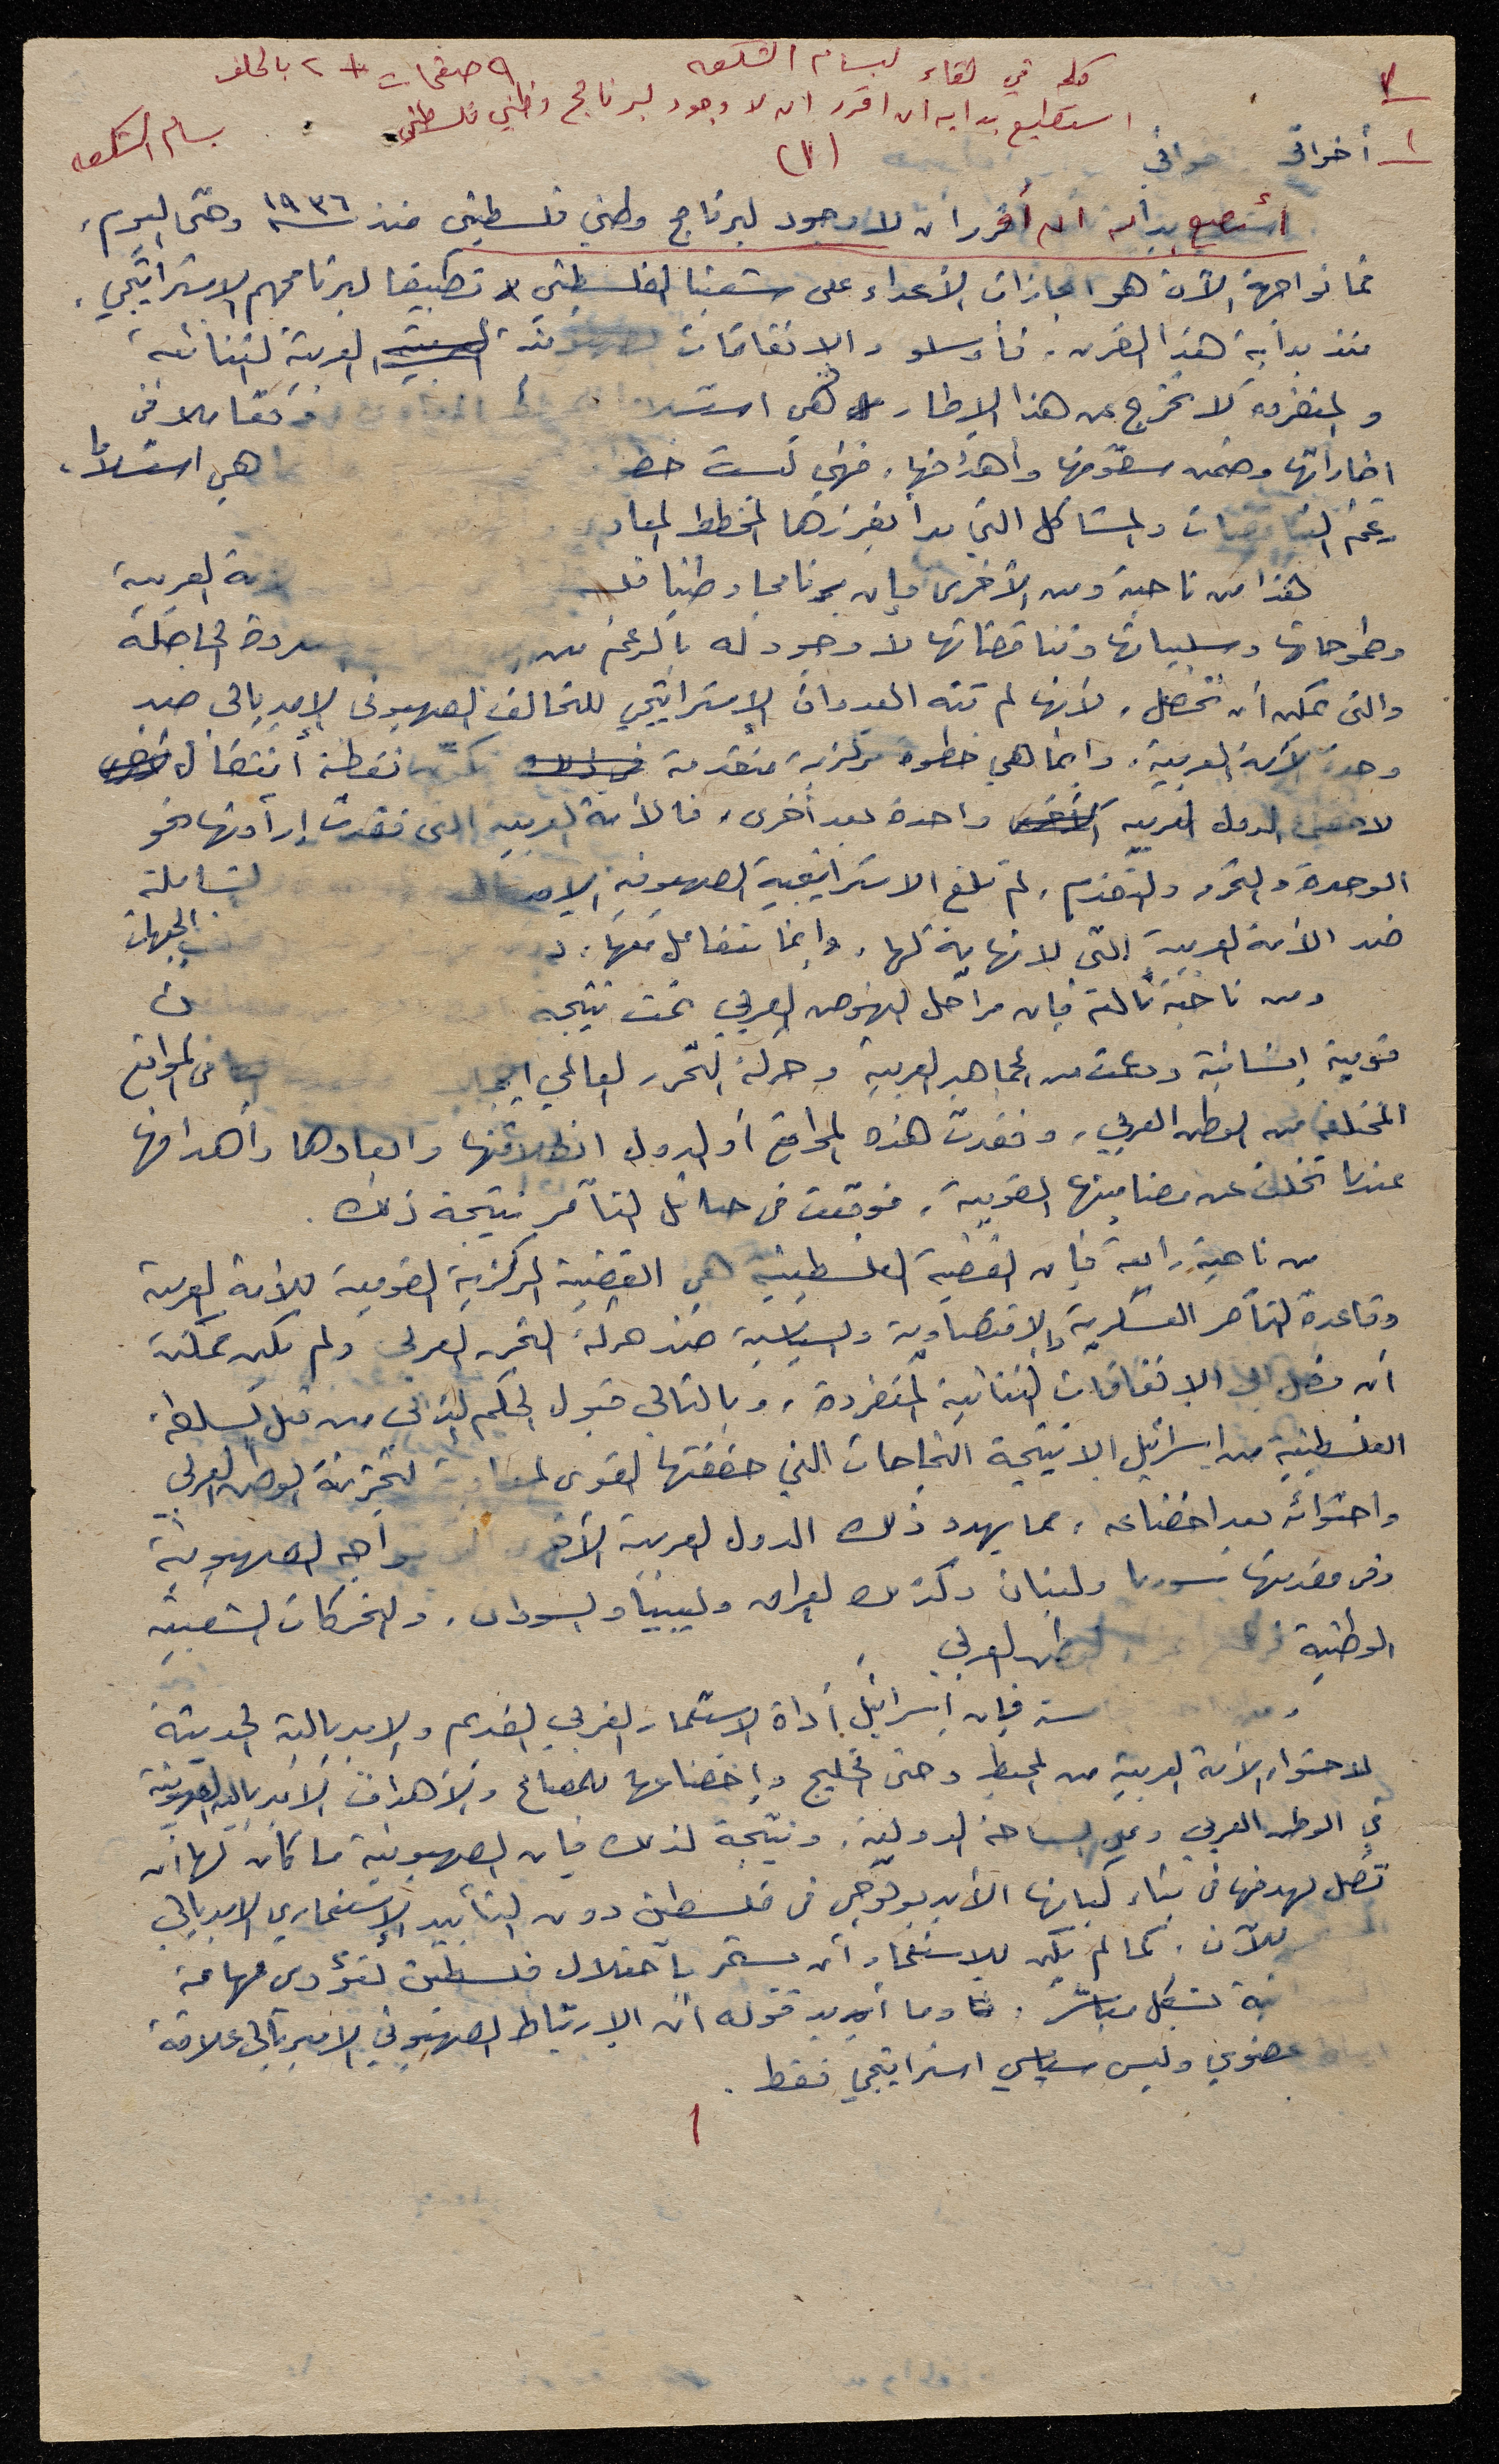 كلمة في لقاء لبسام الشكعه ٩ صفحات + ٢ بالخلف
استطيع بدايه ان اقرر ان لا وجود لبرنامج وطني فلسطيني
بسام الشكعه
١ - أخواتي إخواني
(١)
أستطيع بداية أن أقرر أن لا وجود لبرنامج وطني فلسطيني منذ سنة ١٩٣٦ وحتى اليوم،
فما نواجهه الآن هو انجازات الأعداء على شعبنا الفلسطيني تطبيقا لبرنامجهم الاستراتيجي،
منذ بداية هذا القرن، فأوسلو والاتفاقات العربية الثنائية
والمنفردة لا تخرج عن هذا الإطار وتعاملا في
اطاراتها وضمن سقوفها وأهدافها، فهي ليست هي استسلاما،
رغم التناقضات والمشاكل التي بدأ يفرزها المخطط
هذا من ناحية ومن الأخرى فإن برنامجا وطنيا العربية
وطموحاتها وسلبياتها وتناقضاتها لا وجود له بالرغم من الحاصلة
والتي يمكن أن تحصل، لأنها لم تنه العدوان الاستراتيجي للتحالف الصهيوني الإمبريالي ضد
وحدة الأمة العربية، وانما هي خطوة مركزية متقدمة نقطة انتقال
الدول العربيه واحدة بعد أخرى، فالأمة العربية التي فقدت إرادتها نحو
الوحدة والتحرر والتقدم، لم تلغ الاستراتيجية الصهيونية الشاملة
ضد الأمة العربية التي لا نهاية لها، وانما تتفاعل معها، الجبهات
ومن ناحية ثالثة فإن مراحل النهوض العربي تمت نتيجة
قومية إنسانية ودعمت من الجماهير العربية وحركة التحرر العالمي في المواقع
المختلفة من الوطن العربي، وفقدت هذه المواقع أو الدول انطلاقتها وابعادها وأهدافها
عندما تخلت عن مضامينها القومية، فوقعت في حبائل التآمر نتيجة ذلك.
من ناحية رابعة فإن القضية الفلسطينية هي القضية المركزية القومية للأمة العربية
وقاعدة التآمر العسكرية والاقتصادية والسياسية ضد حركة التحرر العربي ولم يكن ممكنا
أن نصل الى الاتفاقات الثنائية المنفردة، وبالتالي قبول الحكم الذاتي من قبل السلطة
الفلسطينية من إسرائيل الا نتيجة النجاحات التي حققتها القوى لتجزئة الوطن العربي
واحتوائه بعد اخضاعه، مما يهدد ذلك الدول العربية تواجه الصهيونية
وفي مقدمتها سوريا ولبنان وكذلك العراق وليبيا والسودان، والحركات الشعبية
الوطنية الوطن العربي
فإن إسرائيل أداة الاستعمار الغربي القديم والإمبريالية الحديثة
لاحتواء الأمة العربية من المحيط وحتى الخليج وإخضاعها للمصالح والأهداف الامبريالية الصهيونية
في الوطن العربي وعلى الساحة الدولية، ونتيجة لذلك فإن الصهيونية ما كان لها أن
تصل لهدفها في بناء كيانها الأيديولوجي في فلسطين دون التأييد الاستعماري الامبريالي
للآن، كما لم يكن للاستعمار أن يستمر باحتلال فلسطين لتؤدي مهامه
بشكل مباشر، وما أريد قوله أن الارتباط الصهيوني الامبريالي علاقة
عضوي وليس سياسي استراتيجي فقط.
١